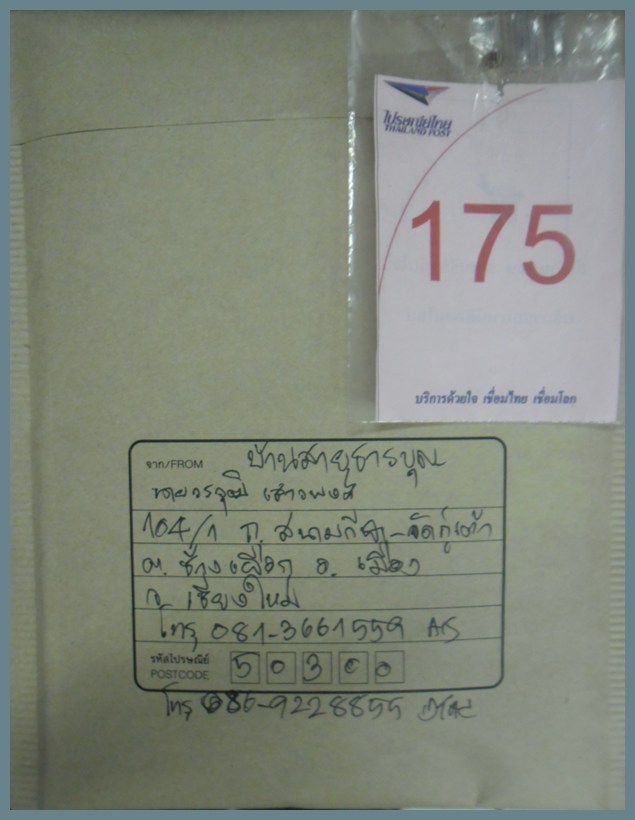 ไปรษณีย์ไทย
THAILAND POST
175
บริการด้วยใจ เชื่อมไทย เชื่อมโลก
จาก/FROM บ้านสายธารบุญ
นายวรวุฒิ เสาวพงศ์
104/1 ถ. สนามกีฬา-วัดกู่เต้า
ต. ช้างเผือก อ. เมือง
จ. เชียงใหม่
โทร 081-3661559 AIS
รหัสไปรษณีย์
POSTCODE 50300
โทร 086-9228855